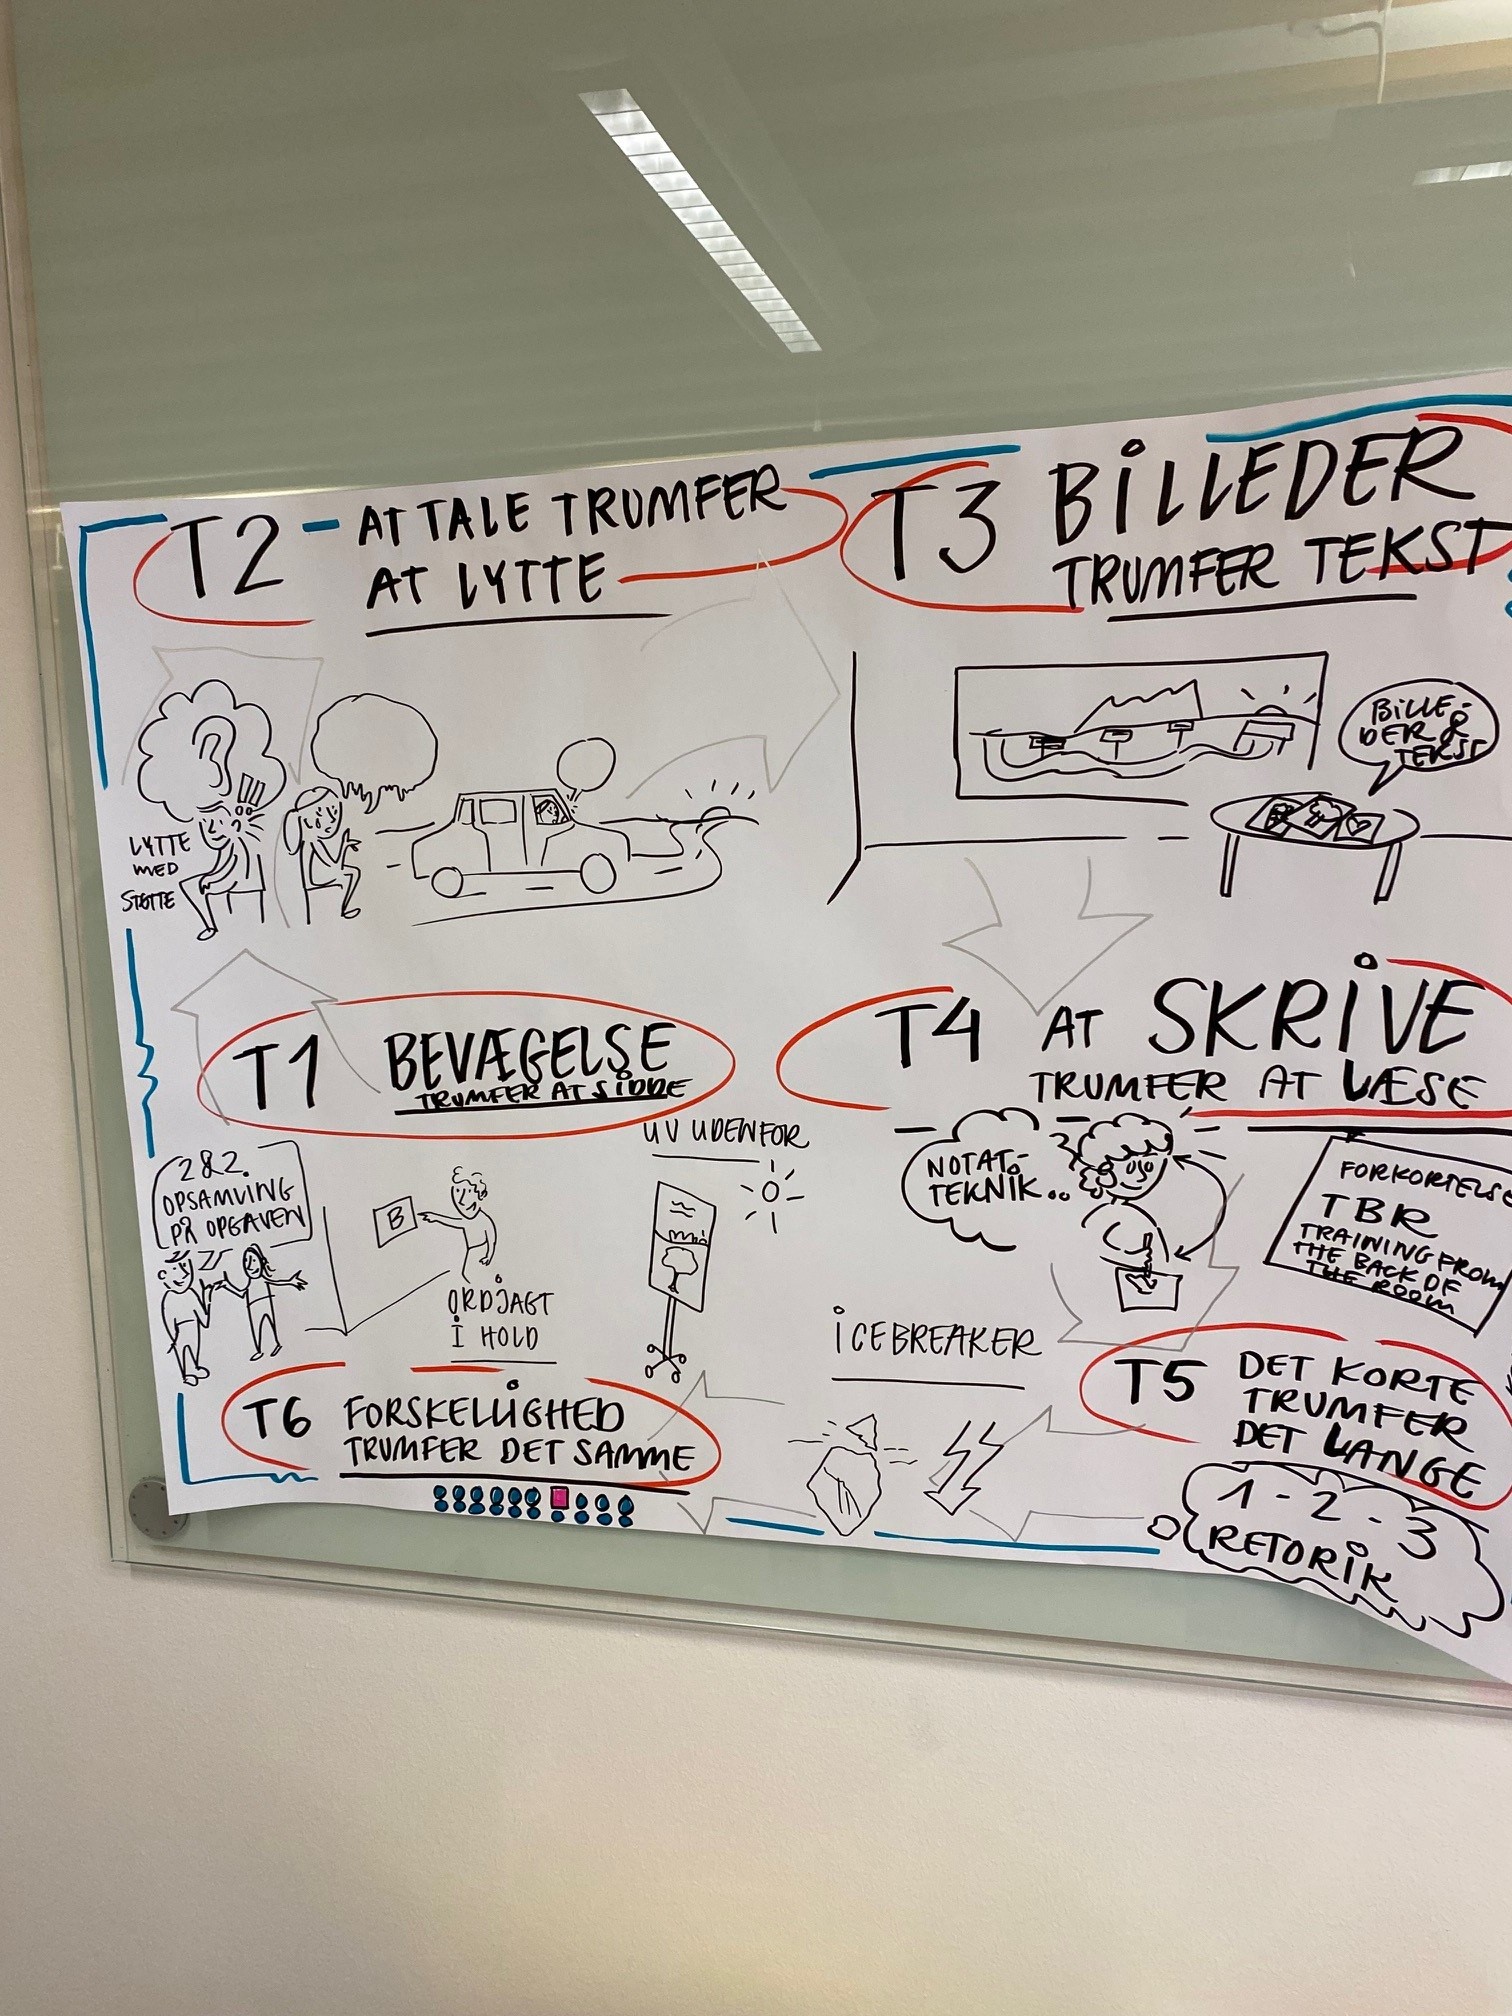 T2 - AT TALE TRUMFER
AT LYTTE
LYTTE
MED
STØTTE
T3 BILLEDER
TRUMFER TEKST
BILLE-
DER &
TEKST
T1 BEVÆGELSE
TRUMFER AT SIDDE
2&2.
OPSAMLING
PÅ OPGAVEN
B
ORDJAGT
I HOLD
UV UDENFOR
T4 AT SKRIVE
TRUMFER AT LÆSE
NOTAT-
TEKNIK..
FORKORTELSE
TBR
TRAINING FROM
THE BACK OF
THE ROOM
T5 DET KORTE
TRUMFER
DET LANGE
1-2-3
RETORIK
ICEBREAKER
T6 FORSKELLIGHED
TRUMFER DET SAMME